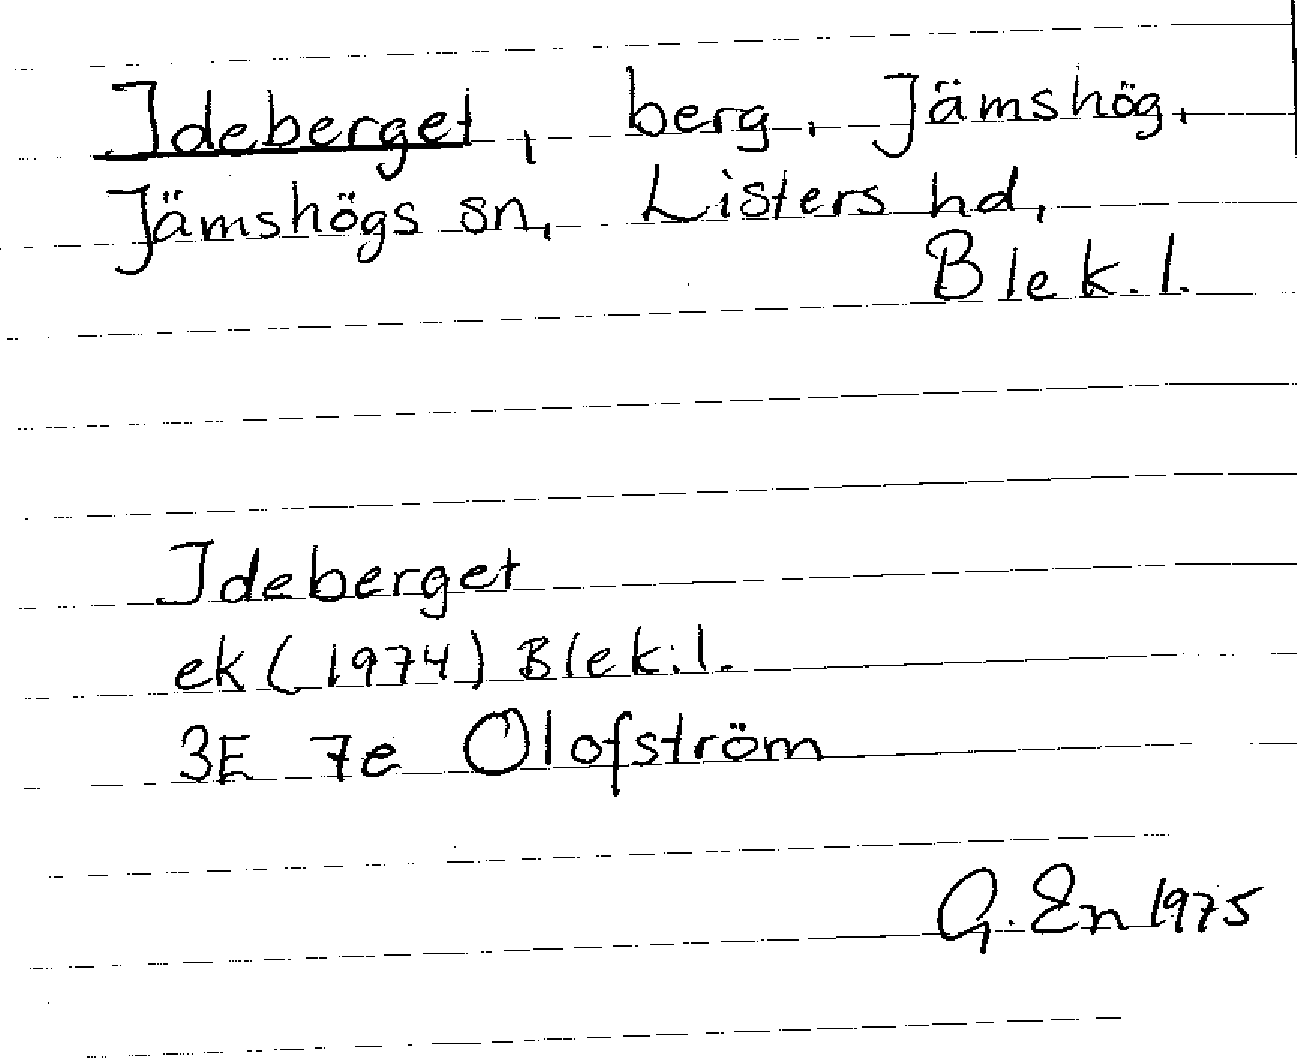 Ideberget, berg, Jämshög,
Jämshögs sn, Listers hd,
Blek. l.
Ideberget
ek (1974) Blek. l.
3E 7e Olofström
G. En 1975